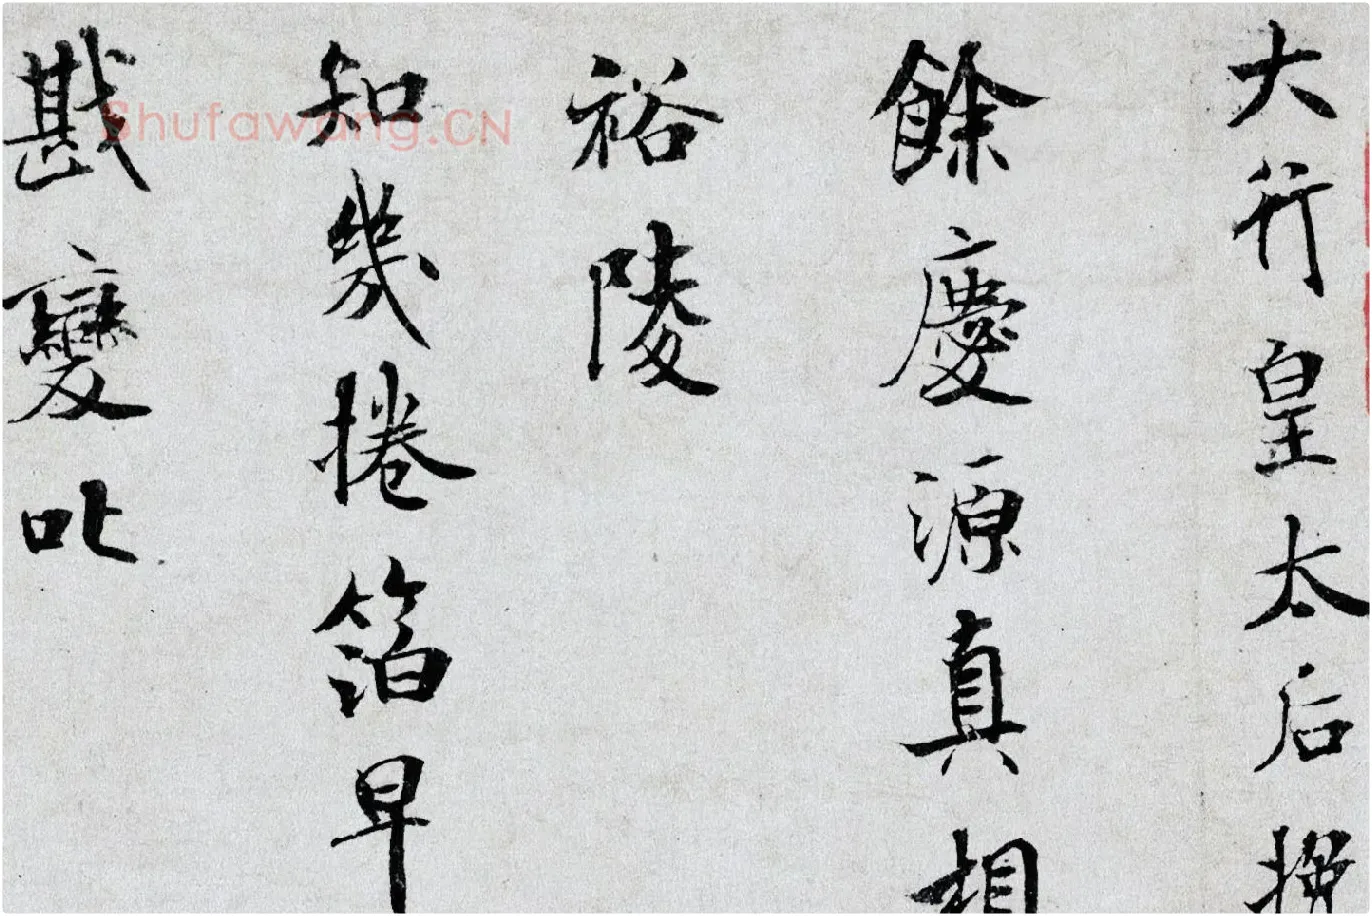 大行皇太后挽
餘慶源真相
裕陵
知幾捲箔早
戡變叱
Shufawang.CN